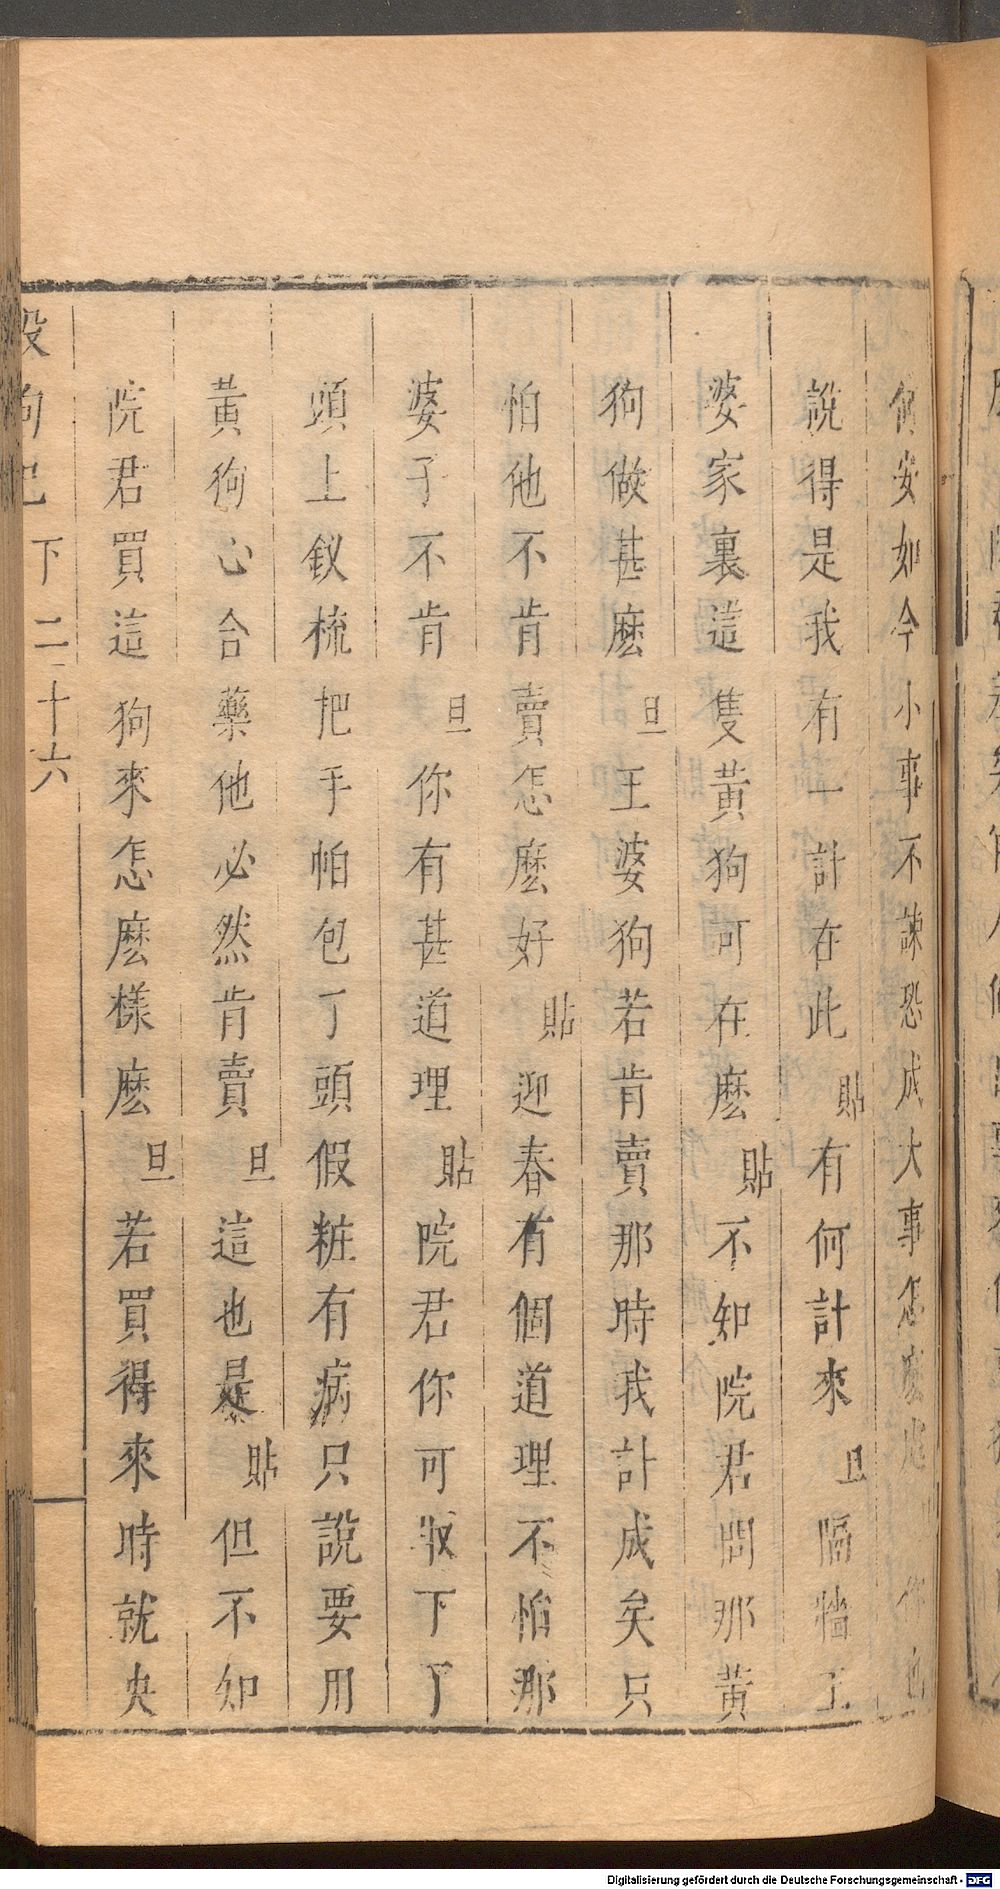 何安如今小事不諫恐成大事怎麽處
說得是我有一計在此貼有何計來旦隔墻王
婆家裏這隻黃狗可在麽貼不知院君問那黃
狗做甚麽旦王婆狗若肯賣那時我計成矣只
怕他不肯賣怎麽好貼迎春有個道理不怕那
婆子不肯旦你有甚道理貼院君你可取下了
頭上釵梳把手帕包了頭假粧有病只說要用
黃狗心合藥他必然肯賣旦這也是貼但不知
院君買這狗來怎麽樣麽旦若買得來時就央
殺狗記 下 二十六
Digitalisierung gefördert durch die Deutsche Forschungsgemeinschaft - DFG